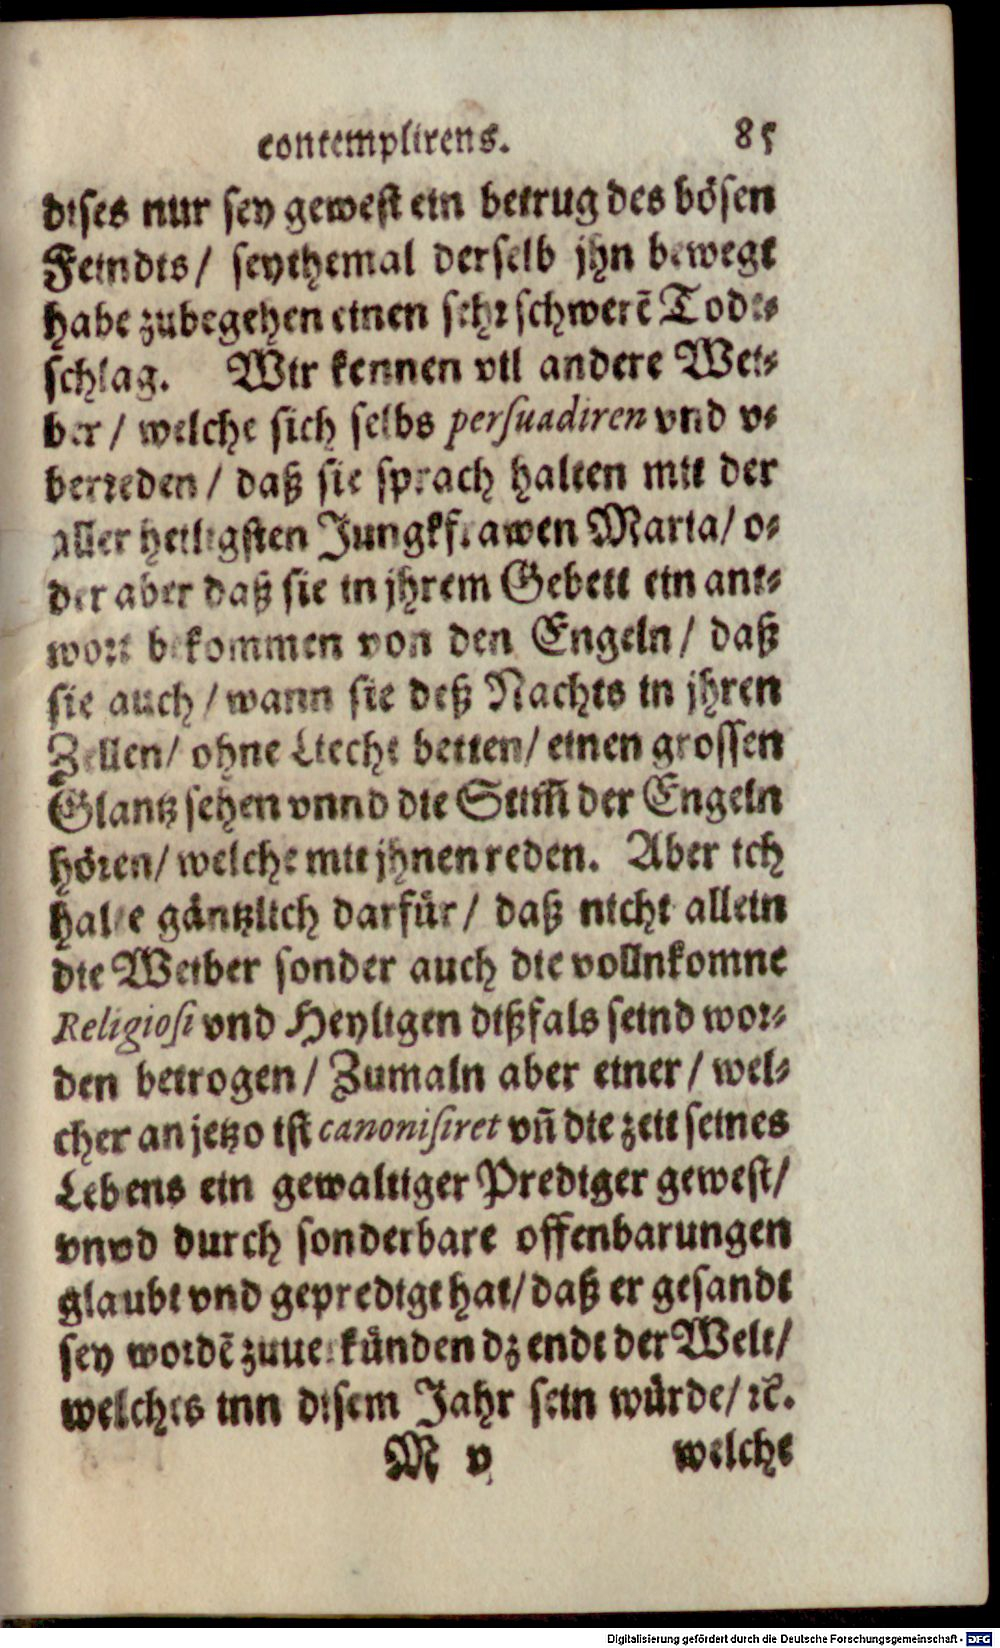 contemplirens. 85
dises nur sey gewest ein betrug des bösen
Feindts / seythemal derselb jhn bewegt
habe zubegehen einen sehr schwerẽ Todt⸗
schlag. Wir kennen vil andere Wei⸗
ber / welche sich selbs persuadiren vnd v⸗
berreden / daß sie sprach halten mit der
aller heiligsten Jungkfrawen Maria / o⸗
der aber daß sie in jhrem Gebett ein ant⸗
wort bekommen von den Engeln / daß
sie auch / wann sie deß Nachts in jhren
Zellen / ohne Liecht betten / einen grossen
Glantz sehen vnnd die Stim̃ der Engeln
hören / welche mit jhnen reden. Aber ich
halte gäntzlich darfür / daß nicht allein
die Weiber sonder auch die vollnkomne
Religiosi vnd Heyligen dißfals seind wor⸗
den betrogen / Zumaln aber einer / wel⸗
cher an jetzo ist canonisiret vñ die zeit seines
Lebens ein gewaltiger Prediger gewest /
vnvd durch sonderbare offenbarungen
glaubt vnd gepredigt hat / daß er gesandt
sey wordẽ zuuerkünden dz endt der Welt /
welches inn disem Jahr sein würde / ꝛc̃.
M v welche
Digitalisierung gefördert durch die Deutsche Forschungsgemeinschaft - DFG